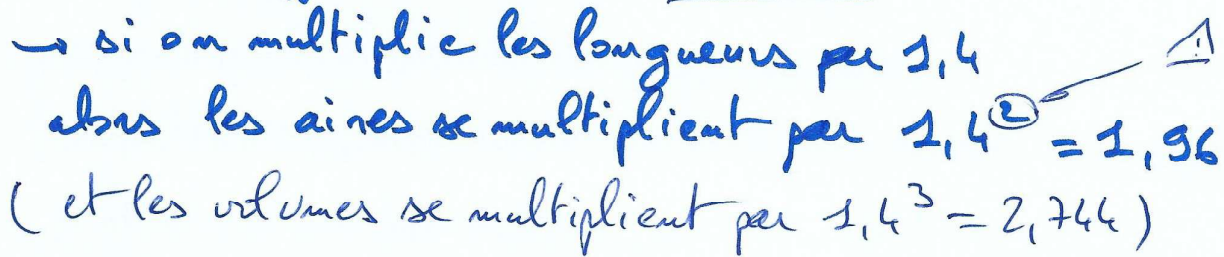 → si on multiplie les longueurs par 1,4
alors les aires se multiplient par 1,4² = 1,96
(et les volumes se multiplient par 1,4³ = 2,744)